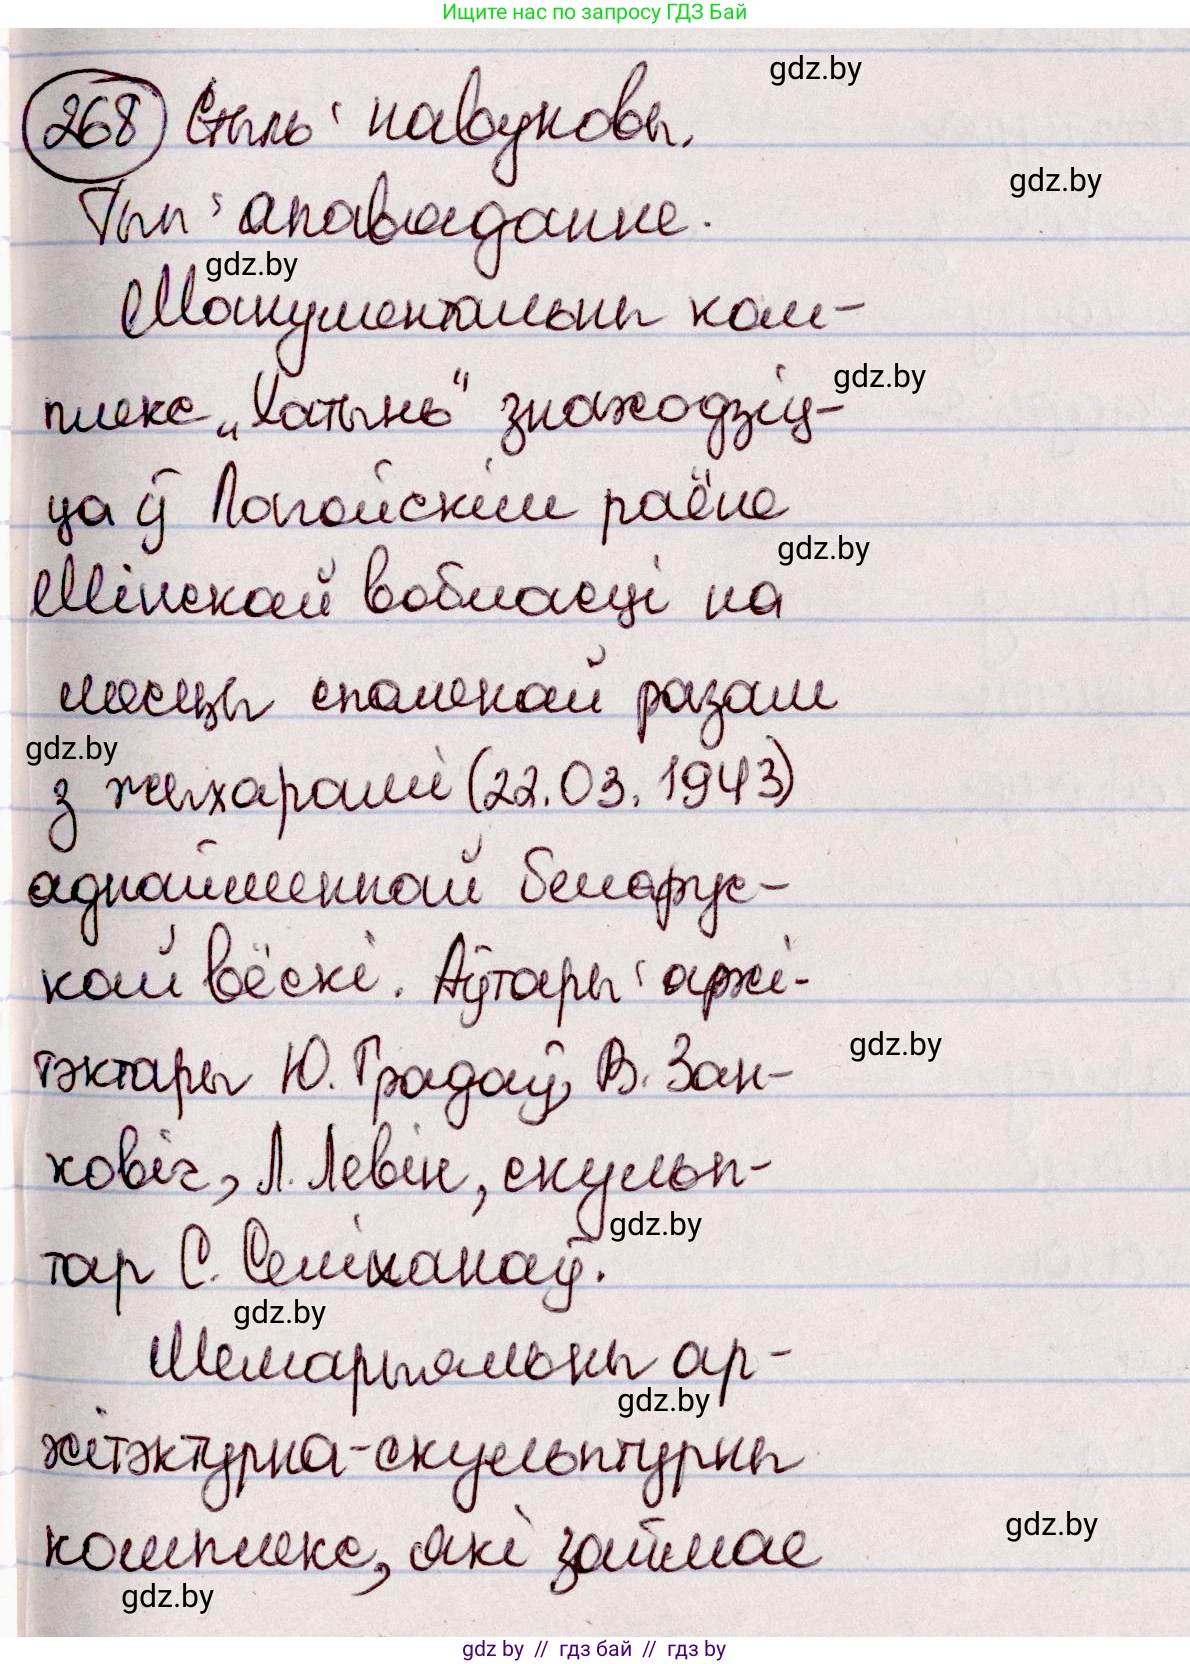 Ищите нас по запросу ГДЗ Бай
gdz.by
268 Стыль: навуковы.
gdz.by
Тып: апавяданне.
gdz.by
Манументальны ком-
gdz.by
плекс „Хатынь“ знаходзіц-
ца ў Лагойскім раёне
gdz.by
Мінскай вобласці на
месцы спаленай разам
gdz.by
з жыхарамі (22.03.1943)
аднайменнай беларус-
кай вёскі. Аўтары: архі-
gdz.by
тэктары Ю. Градаў, В. Зан-
ковіч, Л. Левін, скульп-
gdz.by
тар С. Селіханаў.
gdz.by
Мемарыяльны ар-
gdz.by
хітэктурна-скульптурны
gdz.by
комплекс, які займае
gdz.by
gdz by // гдз бай // гдз by